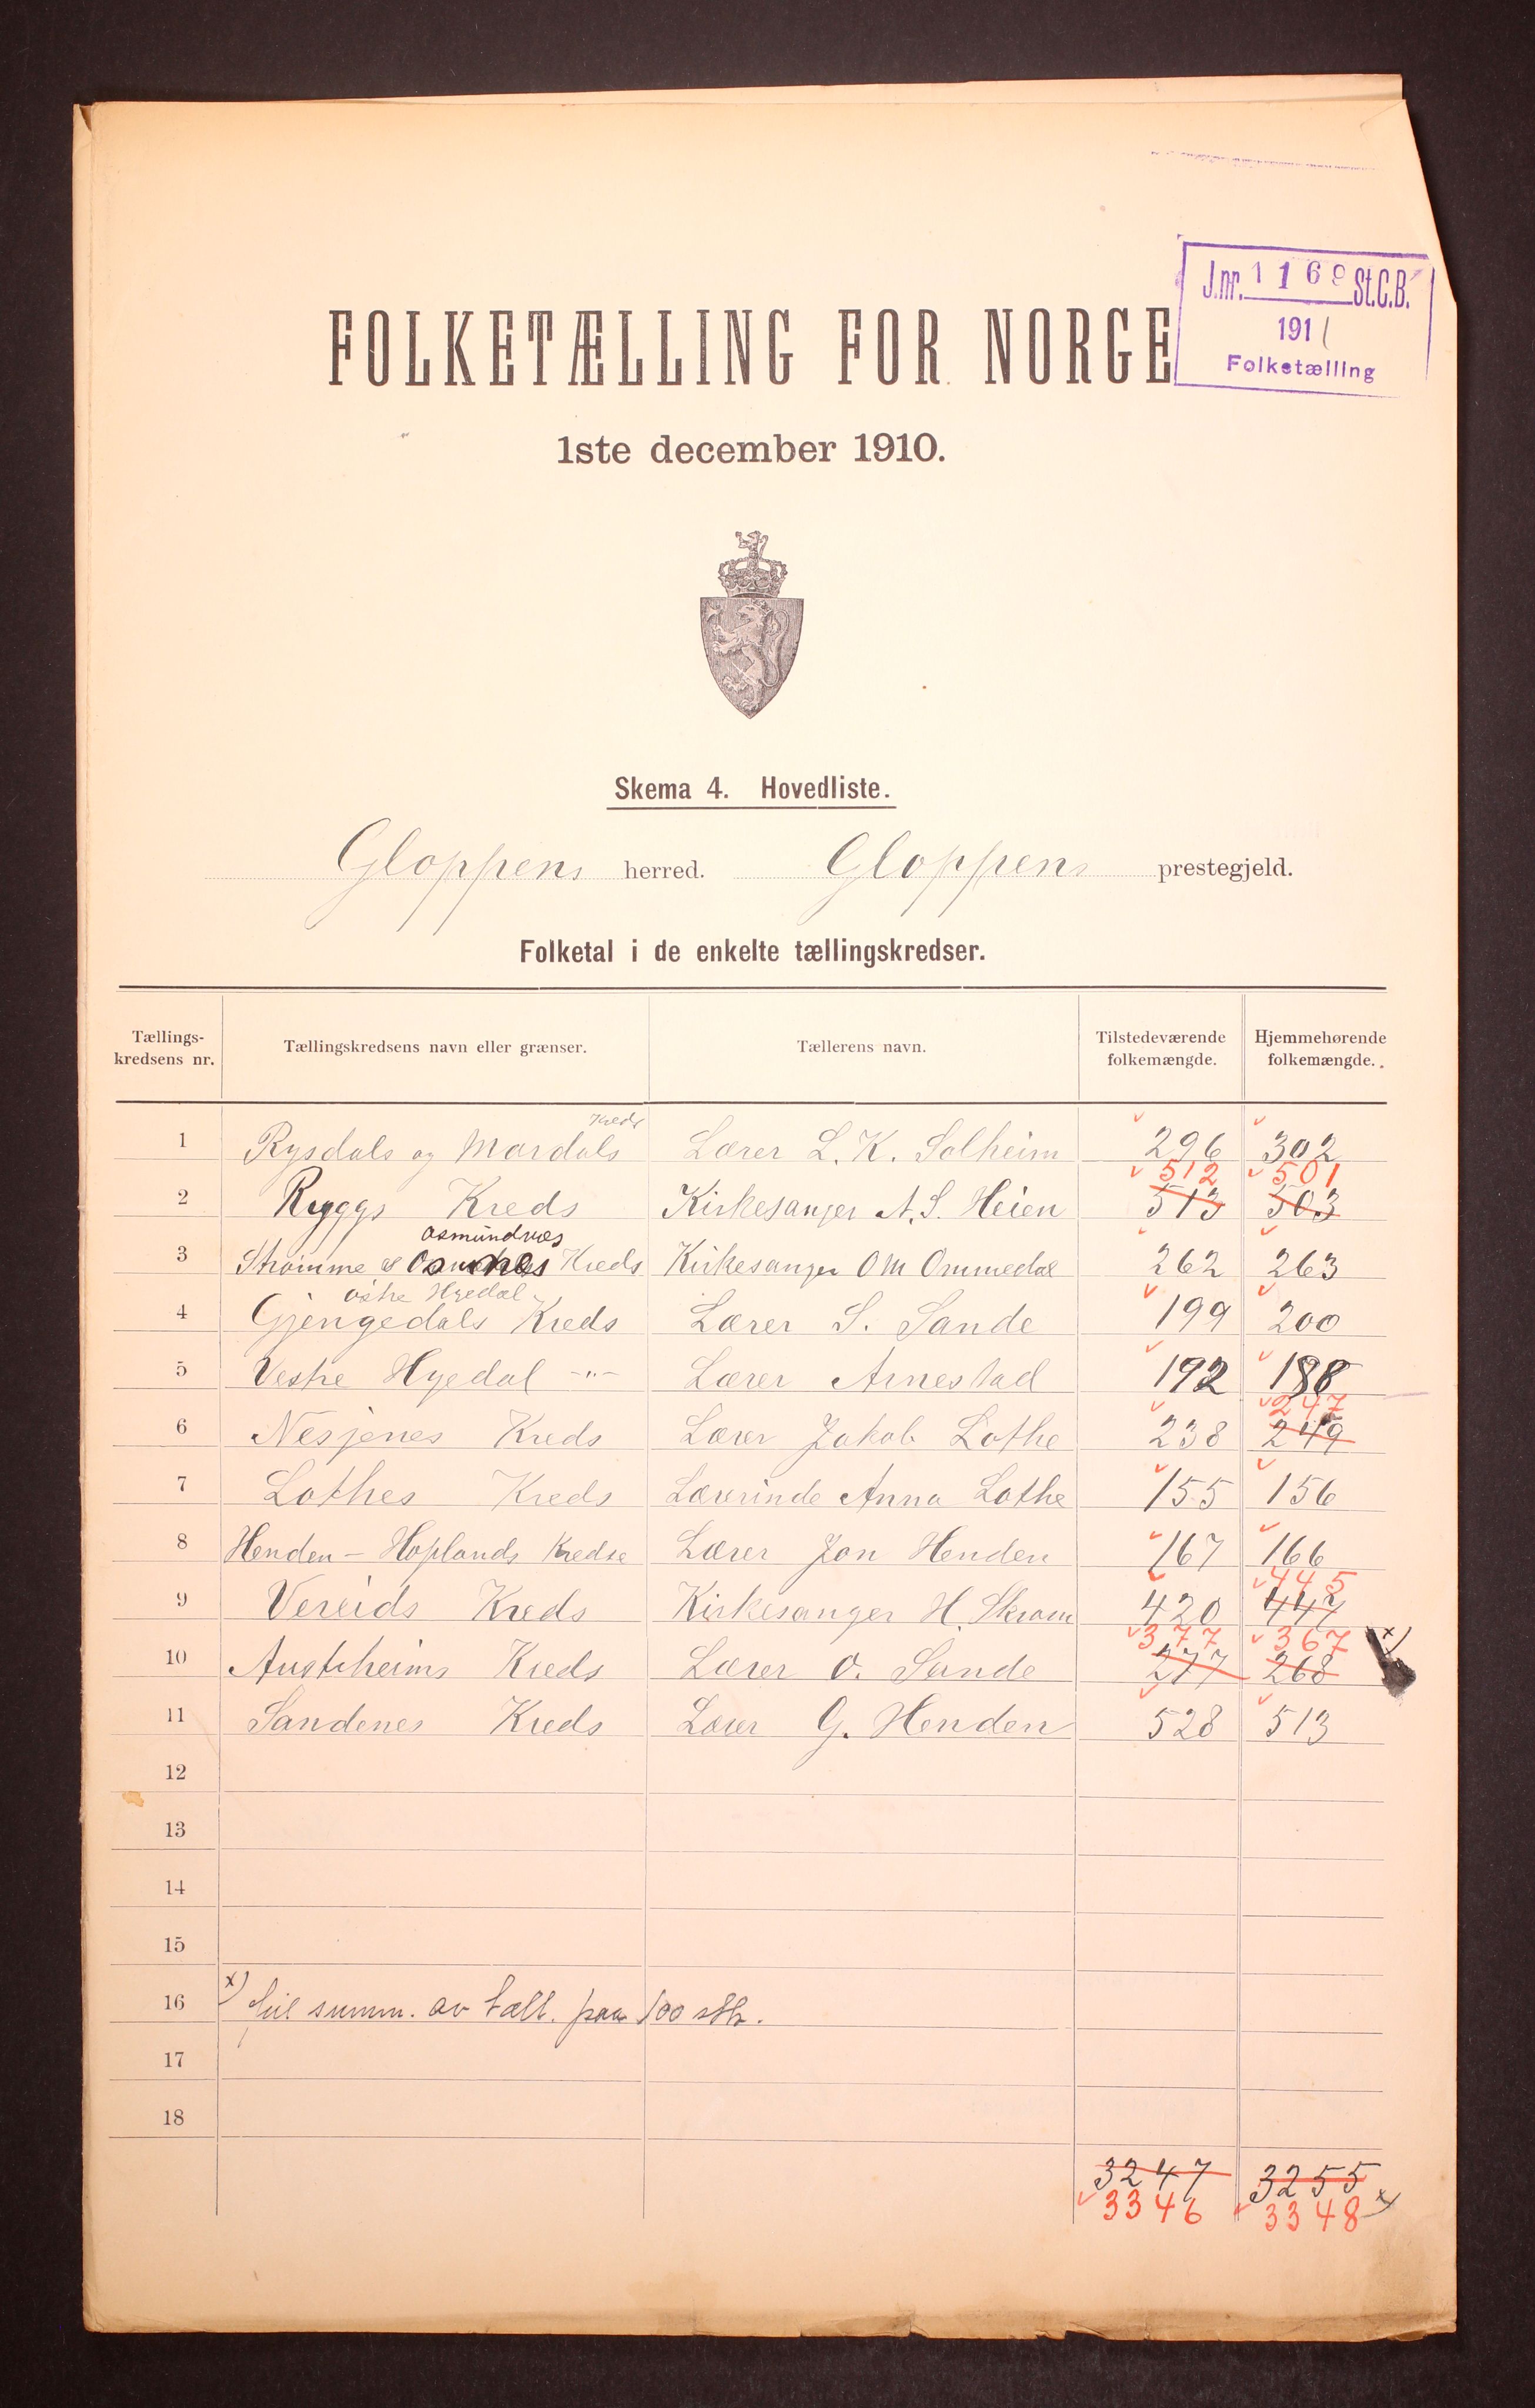 J.nr. 1169 St.C.B.
191/
Folketælling
FOLKETÆLLING FOR NORGE
1ste december 1910.
Skema 4. Hovedliste.
Gloppens herred. Gloppens prestegjeld.
Folketal i de enkelte tællingskredser.
Tællings-kredsens nr. Tællingskredsens navn eller grænser. Tællerens navn. Tilstedeværende folkemængde. Hjemmehørende folkemængde.
Kreds
1 Rysdals og Mardals Lærer L. K. Solheim 296 302
512 501
2 Ryggs Kreds Kirkesanger A. S. Heien 513 503
Osmundnes
3 Strømme & Kreds Kirkesanger O M Ommedal 262 263
østre Hyedal
4 Gjengedals Kreds Lærer S. Sande 199 200
5 Vestre Hyedal -"- Lærer Arnestad 192 188
247
6 Nesjenes Kreds Lærer Jakob Lothe 238 249
7 Lothes Kreds Lærerinde Anna Lothe 155 156
8 Henden - Hoplands Kredse Lærer Jon Henden 167 166
445
9 Vereids Kreds Kirkesanger H. Skram 420 447
377 367 x)
10 Austrheims Kreds Lærer O. Sande 277 268
11 Sandenes Kreds Lærer G. Henden 528 513
12
13
14
15
16 x) feil summ. av tæll. paa 100 stk.
17
18
3247 3255
3346 3348 x)